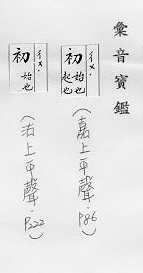 彙音寶鑑
ㄔㄨ
初 始也起也
(嘉上平聲,P86)
ㄔㄨ
初 始也
(沽上平聲,P222)